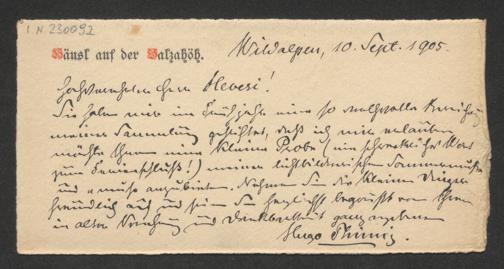 I.N. 230092
Häusl auf der Salzahöh.
Wildalpen, 10. Sept. 1905.
Hochverehrter Herr Hevesi!
Sie haben mir im Frühjahr eine so wertvolle Bereicherung
meiner Sammlung gestiftet, daß ich mir erlauben
möchte Ihnen eine kleine Probe (ein schreckliches Wort
zum Ferienschluß!) meiner lichtbildnerischen Sommermuße
und =muse anzubieten. Nehmen Sie die kleinen Dinger
freundlich auf und seien Sie herzlichst begrüßt von Ihrem
in alter Verehrung und Dankbarkeit ganz ergebenen
Hugo Thimig.